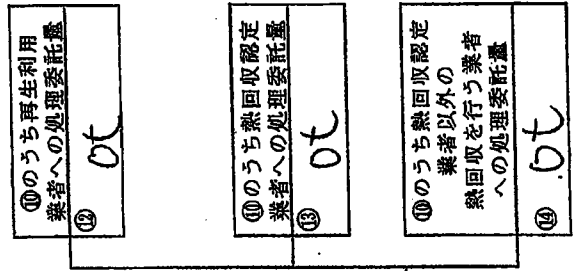 ⑩のうち再生利用
業者への処理委託量
⑫
0t
⑩のうち熱回収認定
業者への処理委託量
⑬
0t
⑩のうち熱回収認定
業者以外の
熱回収を行う業者
への処理委託量
⑭
.0t